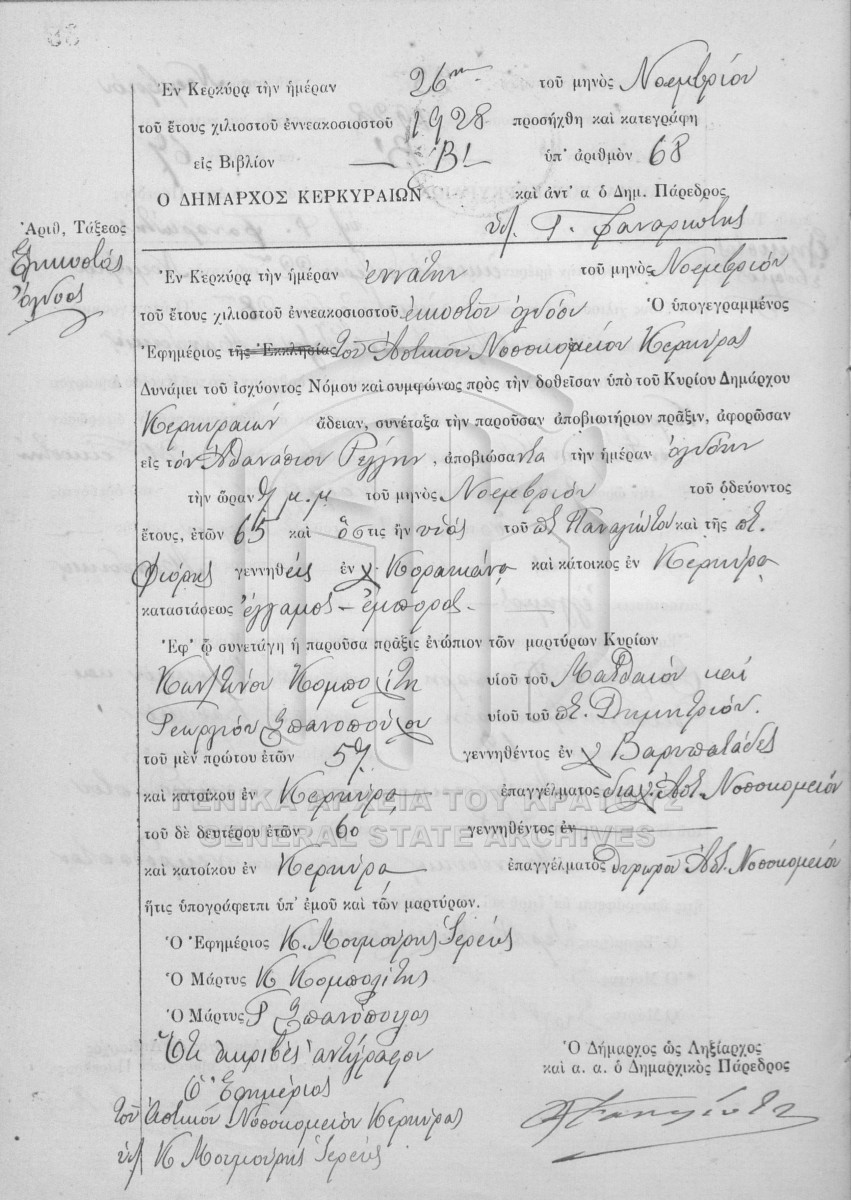 Ἐν Κερκύρᾳ τὴν ἡμέραν 26ην τοῦ μηνὸς Νοεμβρίου
τοῦ ἔτους χιλιοστοῦ ἐννεακοσιοστοῦ 1928 προσήχθη καὶ κατεγράφη
εἰς Βιβλίον — Β! ὑπ' ἀριθμὸν 68
Ο ΔΗΜΑΡΧΟΣ ΚΕΡΚΥΡΑΙΩΝ καὶ ἀντ' α ὁ Δημ. Πάρεδρος
ὑπ. Γ. Φαναριώτης
Ἀριθ, Τάξεως
Εἰκοστὸς
ὄγδοος
Ἐν Κερκύρᾳ τὴν ἡμέραν ἐννάτην τοῦ μηνὸς Νοεμβρίου
τοῦ ἔτους χιλιοστοῦ ἐννεακοσιοστοῦ εἰκοστοῦ ὀγδόου Ὁ ὑπογεγραμμένος
Ἐφημέριος τῆς Ἐκκλησίας τοῦ Ἀστικοῦ Νοσοκομείου Κερκύρας
Δυνάμει τοῦ ἰσχύοντος Νόμου καὶ συμφώνως πρὸς τὴν δοθεῖσαν ὑπὸ τοῦ Κυρίου Δημάρχου
Κερκυραίων ἄδειαν, συνέταξα τὴν παροῦσαν ἀποβιωτήριον πρᾶξιν, ἀφορῶσαν
εἰς τὸν Ἀθανάσιον Ρέγγην, ἀποβιώσαντα τὴν ἡμέραν ὀγδόην
τὴν ὥραν 9 μ.μ τοῦ μηνὸς Νοεμβρίου τοῦ ὁδεύοντος
ἔτους, ἐτῶν 65 καὶ ὅστις ἦν υἱὸς τοῦ πτ Παναγιώτου καὶ τῆς πτ.
Φιόρης γεννηθεὶς ἐν χ. Κορακιάνα καὶ κάτοικος ἐν Κερκύρᾳ
καταστάσεως ἔγγαμος – ἔμπορος –
Ἐφ' ᾧ συνετάγη ἡ παροῦσα πρᾶξις ἐνώπιον τῶν μαρτύρων Κυρίων
Κων/τίνου Κομπολίτη υἱοῦ τοῦ Ματθαίου καὶ
Γεωργίου Σπανοπούλου υἱοῦ τοῦ πτ. Δημητρίου.
τοῦ μὲν πρώτου ἐτῶν 57 γεννηθέντος ἐν χ Βαρυπατάδες
καὶ κατοίκου ἐν Κερκύρᾳ ἐπαγγέλματος διαχ. Ἀστ. Νοσοκομείου
ΓΕΝΙΚΑ ΑΡΧΕΙΑ ΤΟΥ ΚΡΑΤΟΥΣ
τοῦ δὲ δευτέρου ἐτῶν 60 γεννηθέντος ἐν —
GENERAL STATE ARCHIVES
καὶ κατοίκου ἐν Κερκύρᾳ ἐπαγγέλματος θυρωροῦ Ἀστ. Νοσοκομείου
ἥτις ὑπογράφετπι ὑπ' ἐμοῦ καὶ τῶν μαρτύρων.
Ὁ Ἐφημέριος Κ. Μουμούρης Ἱερεύς
Ὁ Μάρτυς Κ Κομπολίτης
Ὁ Μάρτυς Γ Σπανόπουλος
Ὅτι ἀκριβὲς ἀντίγραφον
Ὁ Ἐφημέριος
τοῦ Ἀστικοῦ Νοσοκομείου Κερκύρας
ὑπ. Κ Μουμούρης Ἱερεύς
Ὁ Δήμαρχος ὡς Ληξίαρχος
καὶ α. α. ὁ Δημαρχικὸς Πάρεδρος